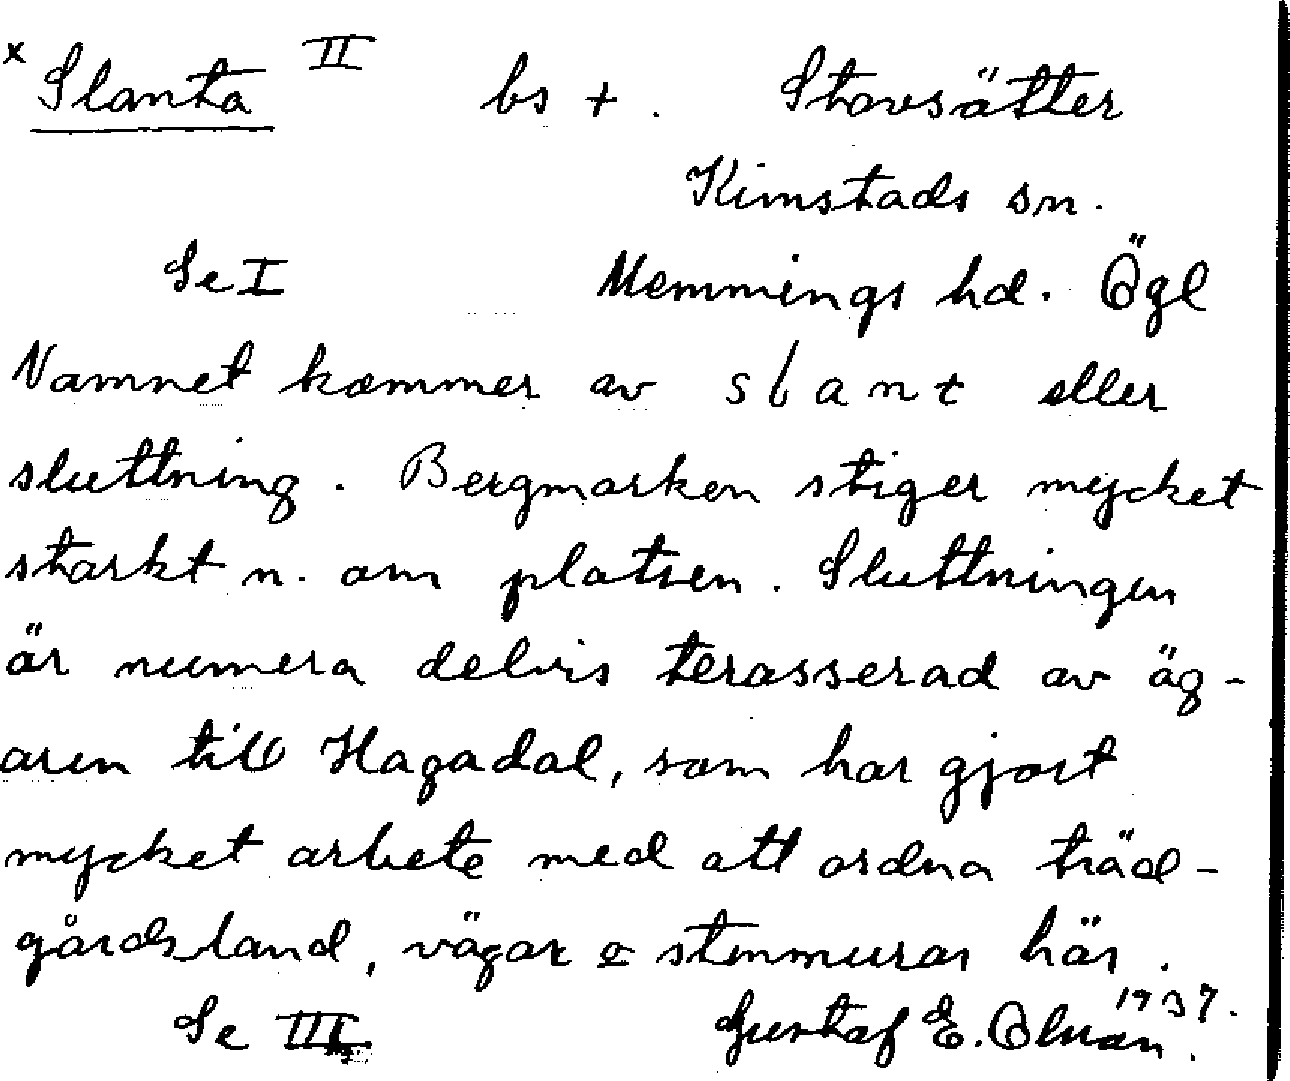 x Slanta II bs + . Stavsätter
Kimstads sn.
Se I Memmings hd. Ögl
Namnet kommer av slant eller
sluttning. Bergmarken stiger mycket
starkt n. om platsen. Sluttningen
är numera delvis terasserad av äg-
aren till Hagadal, som har gjort
mycket arbete med att ordna träd-
gårdsland, vägar o stenmurar här.
Se III Gustaf E. Olman 1937.